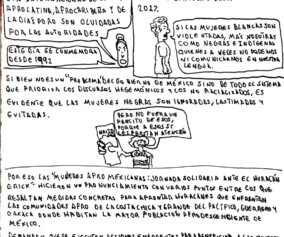 AFROLATINA, AFROCARIBEÑA Y DE
LA DIÁSPORA SON OLVIDADAS
POR LAS AUTORIDADES
ESTO DÍA SE CONMEMORA
DESDE 1992
2017.
SI LAS MUJERES BLANCAS SON
VIOLENTADAS, MÁS NOSOTRAS
COMO NEGRAS E INDÍGENAS
QUE NOS A VECES NO PODEMOS
NI COMUNICARNOS EN NUESTRA
LENGUA.
SI BIEN NO ES UN "PROBLEMA" DEL GOBIERNO DE MÉXICO SINO DE TODO EL SISTEMA
QUE PRIORIZA LOS DISCURSOS HEGEMÓNICOS Y LOS NO RACIALIZADOS, ES
EVIDENTE QUE LAS MUJERES NEGRAS SON IGNORADAS, LASTIMADAS Y
EVITADAS.
PERO NO FUERA UN
PANCITO DE ESOS,
PORQUE A ESOS SÍ
LES PRESTAN ATENCIÓN
POR ESO LAS "MUJERES AFROMEXICANAS: JORNADA SOLIDARIA ANTE EL HURACÁN
ERICK" HICIERON UN PRONUNCIAMIENTO CON VARIOS PUNTOS ENTRE LOS QUE
RESALTAN MEDIDAS CONCRETAS PARA AFRONTAR HURACANES QUE ENFRENTAN
LAS COMUNIDADES AFRO DE LA COSTA CHICA Y GRANDE DEL PACÍFICO, GUERRERO Y
OAXACA DONDE HABITAN LA MAYOR POBLACIÓN AFRODESCENDIENTE DE
MÉXICO.